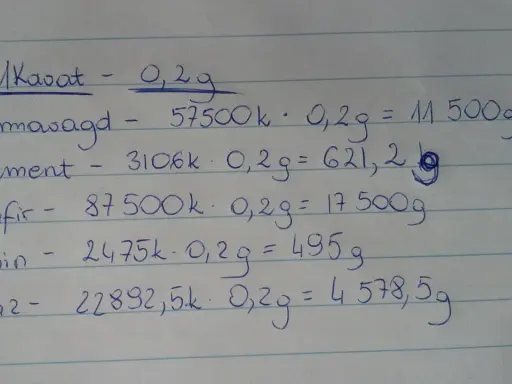 1Karat - 0,2g
maragd - 57500k · 0,2g = 11 500g
ment - 3106k · 0,2g = 621,2 g
fir - 87500k · 0,2g = 17 500g
in - 2475k · 0,2g = 495g
22892,5k · 0,2g = 4 578,5g